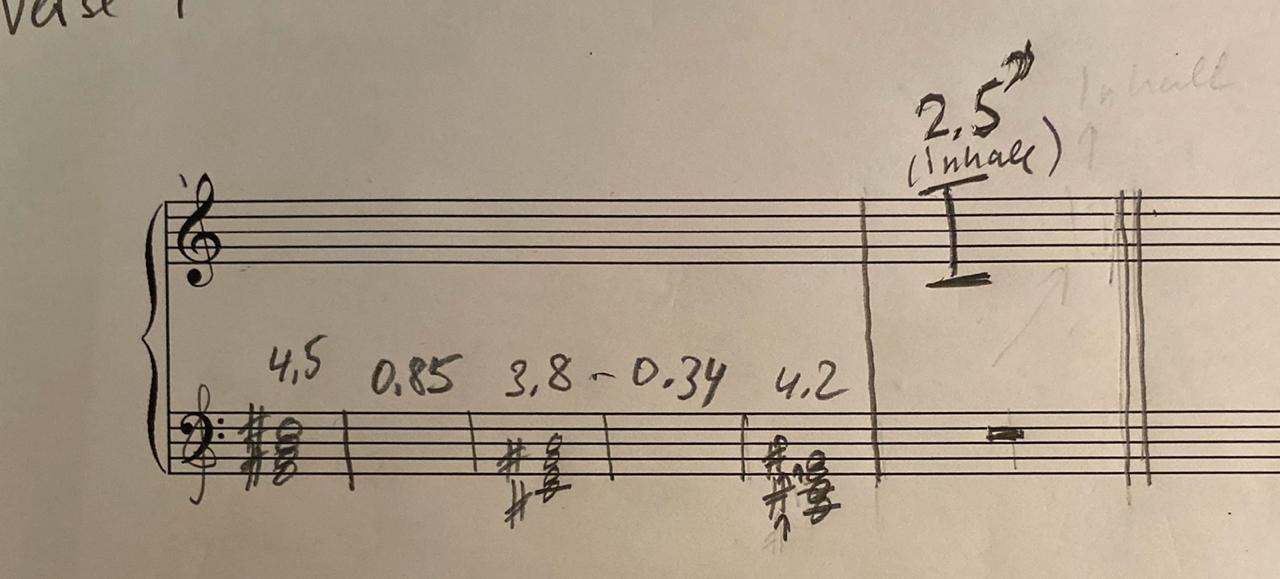 Verse 1
2.5"
(Inhale)
Inhale
4,5 0.85 3,8 - 0.34 4.2